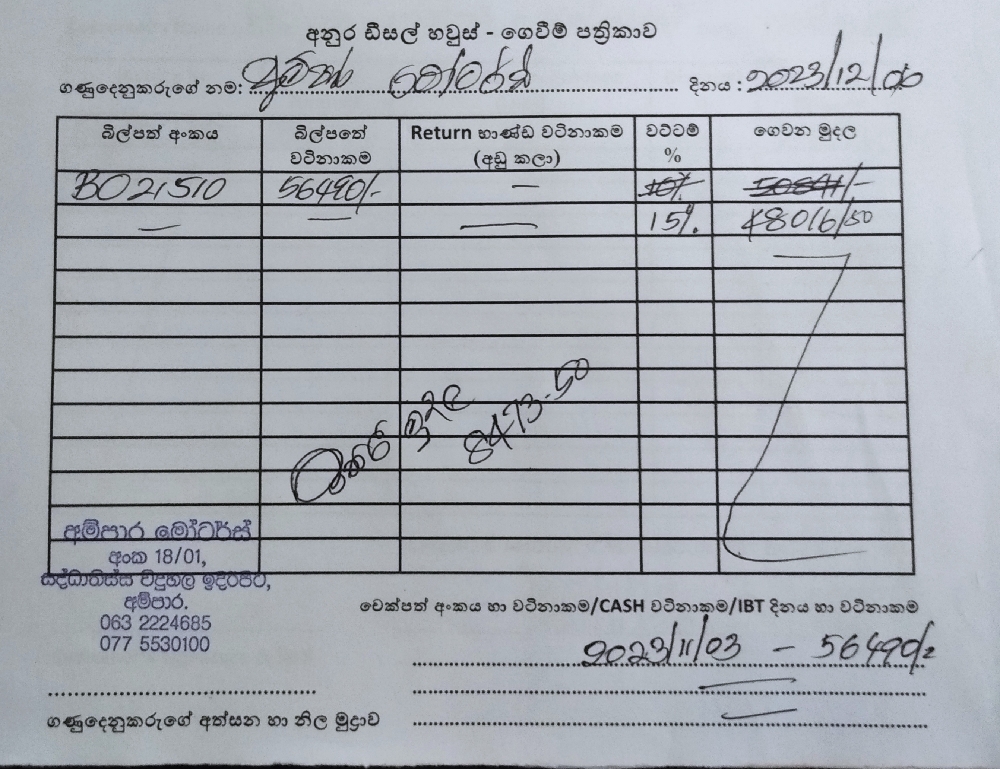 අනුර ඩීසල් හවුස් - ගෙවීම් පත්‍රිකාව
ගණුදෙනුකරුගේ නම: අම්පාර මෝටර්ස් දිනය : 2023/12/06
බිල්පත් අංකය බිල්පතේ වටිනාකම Return භාණ්ඩ වටිනාකම (අඩු කලා) වට්ටම් % ගෙවන මුදල
BO21510 56490/- — 10% 50841/-
— — — 15% 48016/50
8473-50
අම්පාර මෝටර්ස්
අංක 18/01,
සද්ධාතිස්ස විදුහල ඉදිරිපිට,
අම්පාර.
063 2224685
077 5530100
චෙක්පත් අංකය හා වටිනාකම/CASH වටිනාකම/IBT දිනය හා වටිනාකම
2023/11/03 - 56490/=
ගණුදෙනුකරුගේ අත්සන හා නිල මුද්‍රාව